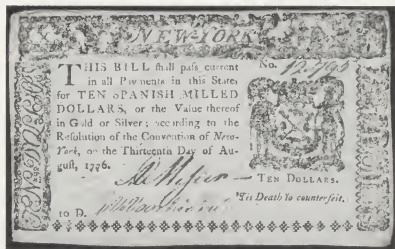 NEW-YORK
THIS BILL ſhall paſs current
in all Payments in this State
for TEN SPANISH MILLED
DOLLARS, or the Value thereof
in Gold or Silver; according to the
Reſolution of the Convention of New-
York, on the Thirteenth Day of Au-
guſt, 1776.
No.
TEN DOLLARS.
'Tis Death to counterfeit.
10 D.